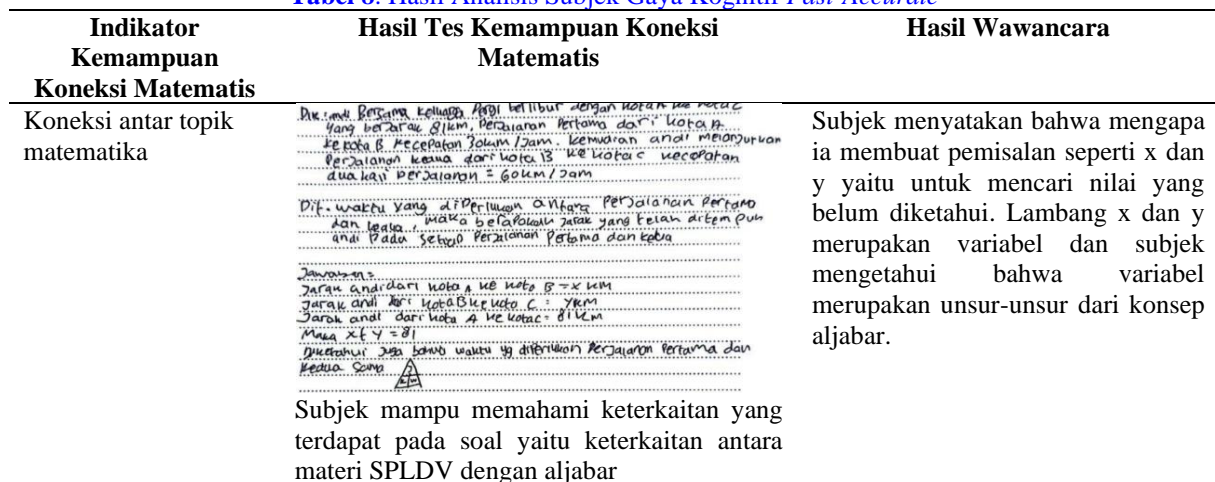 Tabel 6. Hasil Analisis Subjek Gaya Kognitif Fast Accurate
Indikator
Kemampuan
Koneksi Matematis
Hasil Tes Kemampuan Koneksi
Matematis
Hasil Wawancara
Koneksi antar topik
matematika
Dik: andi Bersama keluarga Pergi berlibur dengan kota
yang berjarak 81km, Perjalanan Pertama dari kota A
ke kota B kecepatan 30km/Jam. kemudian andi melanjutkan
Perjalanan kedua dari kota B ke kota C kecepatan
dua kali perjalanan = 60km/Jam
Dit. waktu yang diperlukan antara Perjalanan Pertama
dan kedua, maka berapakah jarak yang telah ditempuh
andi Pada setiap Perjalanan Pertama dan kedua
Jawaban =
Jarak andi dari kota A ke kota B = x km
Jarak andi dari kota B ke kota C = y km
Jarak andi dari kota A ke kota C = 81 km
Maka x + y = 81
Diketahui Juga bahwa waktu yg diperlukan Perjalanan Pertama dan
kedua Sama
Subjek mampu memahami keterkaitan yang
terdapat pada soal yaitu keterkaitan antara
materi SPLDV dengan aljabar
Subjek menyatakan bahwa mengapa
ia membuat pemisalan seperti x dan
y yaitu untuk mencari nilai yang
belum diketahui. Lambang x dan y
merupakan variabel dan subjek
mengetahui bahwa variabel
merupakan unsur-unsur dari konsep
aljabar.